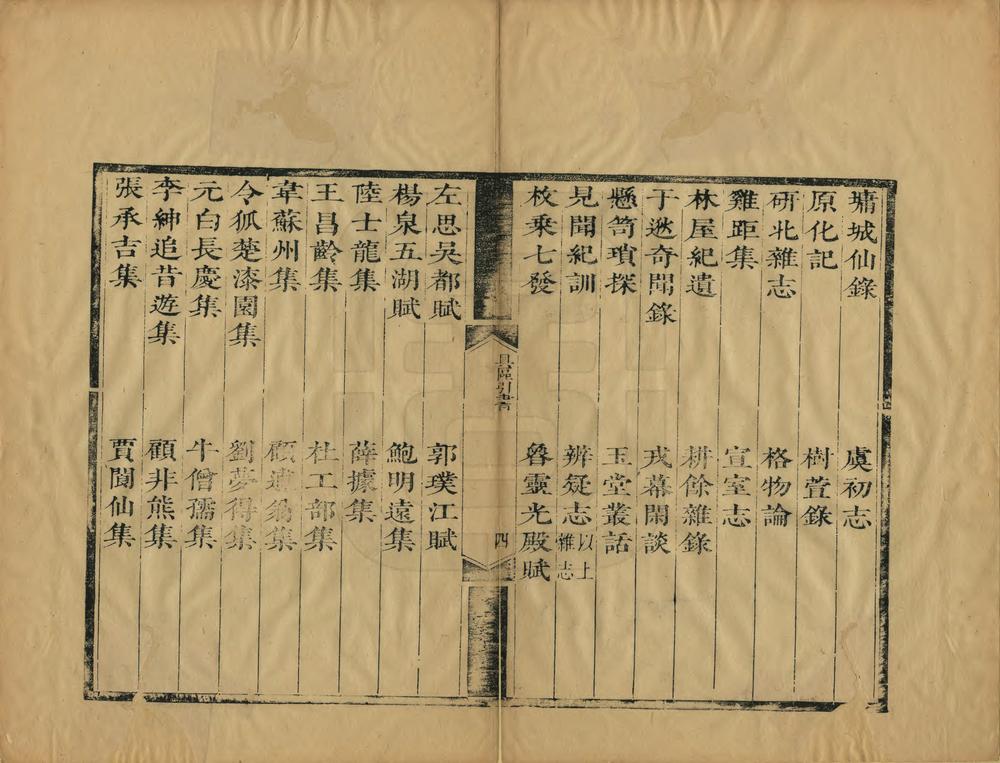 墉城仙錄　虞初志
原化記　樹萱錄
研北雜志　格物論
雞距集　宣室志
林屋紀遺　耕餘雜錄
于逖奇聞錄　戎幕閑談
懸笥瑣探　玉堂叢話
見聞紀訓　辨疑志以上雜志
枚乘七發　魯靈光殿賦
具區引書　四
左思吳都賦　郭璞江賦
楊泉五湖賦　鮑明遠集
陸士龍集　薛據集
王昌齡集　杜工部集
韋蘇州集　顧逋翁集
令狐楚漆園集　劉夢得集
元白長慶集　牛僧孺集
李紳追昔遊集　顧非熊集
張承吉集　賈閬仙集